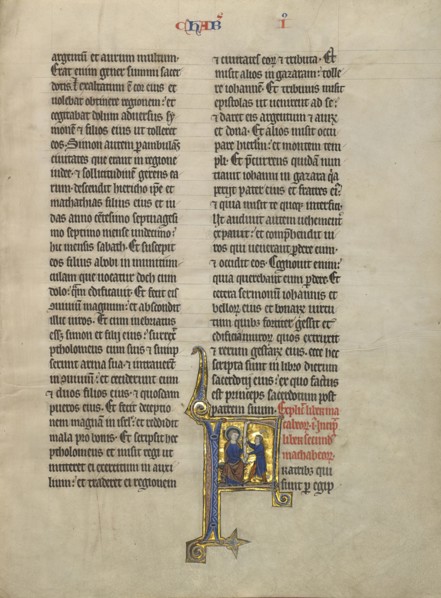 CHABЄ I
argentū et aurum multum·
Erat enim gener summi sacer
dotis. Et exaltatum ē cor eius et
uolebat obtinere regionem: et
cogitabat dolum aduersus sy
monē & filios eius ut tolleret
eos. Simon autem ꝑambulās
ciuitates que erant in regione
iudee· & sollicitudinē gerens ea
rum· descendit hiericho ipē et
mathathias filius eius et iu
das anno cētesimo septuagesi
mo septimo mense undecimo:
hic mensis sabath. Et suscepit
eos filius abobi in munitiun
culam que uocatur doch cum
dolo: quā edificauit. Et fecit eis
ↄuiuiū magnum: et abscondit
illic uiros. Et cum inebriatus
ess& simon et filii eius: surrex̄
ptholomeus cum suis & sump
serunt arma sua & intrauerūt
in ↄuiuiū: et occiderunt eum
& duos filios eius & quosdam
pueros eius. Et fecit deceptio
nem magnā in isrl̄: et reddidit
mala pro bonis. Et scripsit hec
ptholomeus et misit regi ut
mitteret ei exercitum in auxi
lium: et traderet ei regionem
& ciuitates eoꝝ & tributa. Et
misit alios in gazaram: tolle
re iohannē. Et tribunis misit
epistolas ut uenirent ad se:
& daret eis argentum & auꝝ
et dona. Et alios misit occu
pare hierlm̄: et montem tem
pli. Et p̄currens quidā nun
tiauit iohanni in gazara qa
periit pater eius et fratres eiꝰ:
& quia misit te quoqꝫ interfici.
Ut audiuit autem uehementer
expauit: et comprehendit ui
ros qui uenerant ꝑdere eum·
& occidit eos. Cognouit enim:
quia querebant eum ꝑdere. Et
cetera sermonum iohannis et
belloꝝ eius et bonaꝝ uirtu
tum quibꝫ fortiter gessit et
edificii muroꝝ quos extruxit
& rerum gestaꝝ eius. ecce hec
scripta sunt in libro dierum
sacerdotii eius: ex quo factus
est princeps sacerdotum post
patrem suum. Explic̄ liber ma
chabeoꝝ· i· Incip̄
liber secundꝰ
machabeoꝝ.
FRATRIBꝫ QUI
sunt ꝑ egip